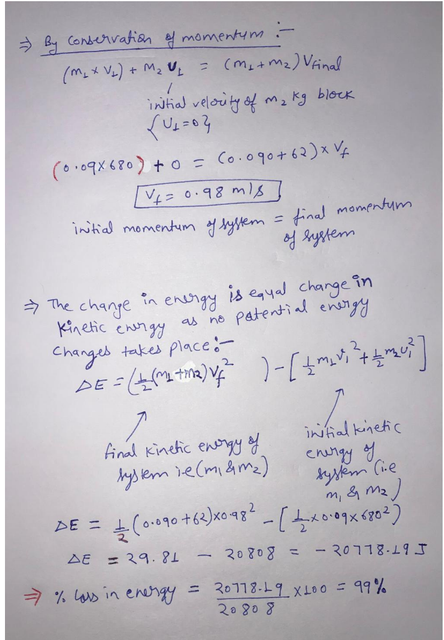 ⇒ By conservation of momentum :-
(m₁ x V₁) + M₂ U₁ = (m₁+m₂) Vfinal
initial velocity of m₂ kg block
{U₁=0}
(0.09X680) + 0 = (0.090+62)x Vf
Vf = 0.98 m/s
initial momentum of system = final momentum
of system
⇒ The change in energy is equal change in
kinetic energy as no potential energy
changes takes place:-
ΔE = (½(m₁+m₂) Vf² ) - [½ m₁v₁² + ½ m₂u₁²]
final kinetic energy of
system i.e (m₁ & m₂)
initial kinetic
energy of
system (i.e
m₁ & m₂)
ΔE = ½ (0.090+62)x0.98² - [½ x 0.09x680²)
ΔE = 29.81 - 20808 = -20778.19 J
⇒ % loss in energy = 20778.19 / 20808 x100 = 99%